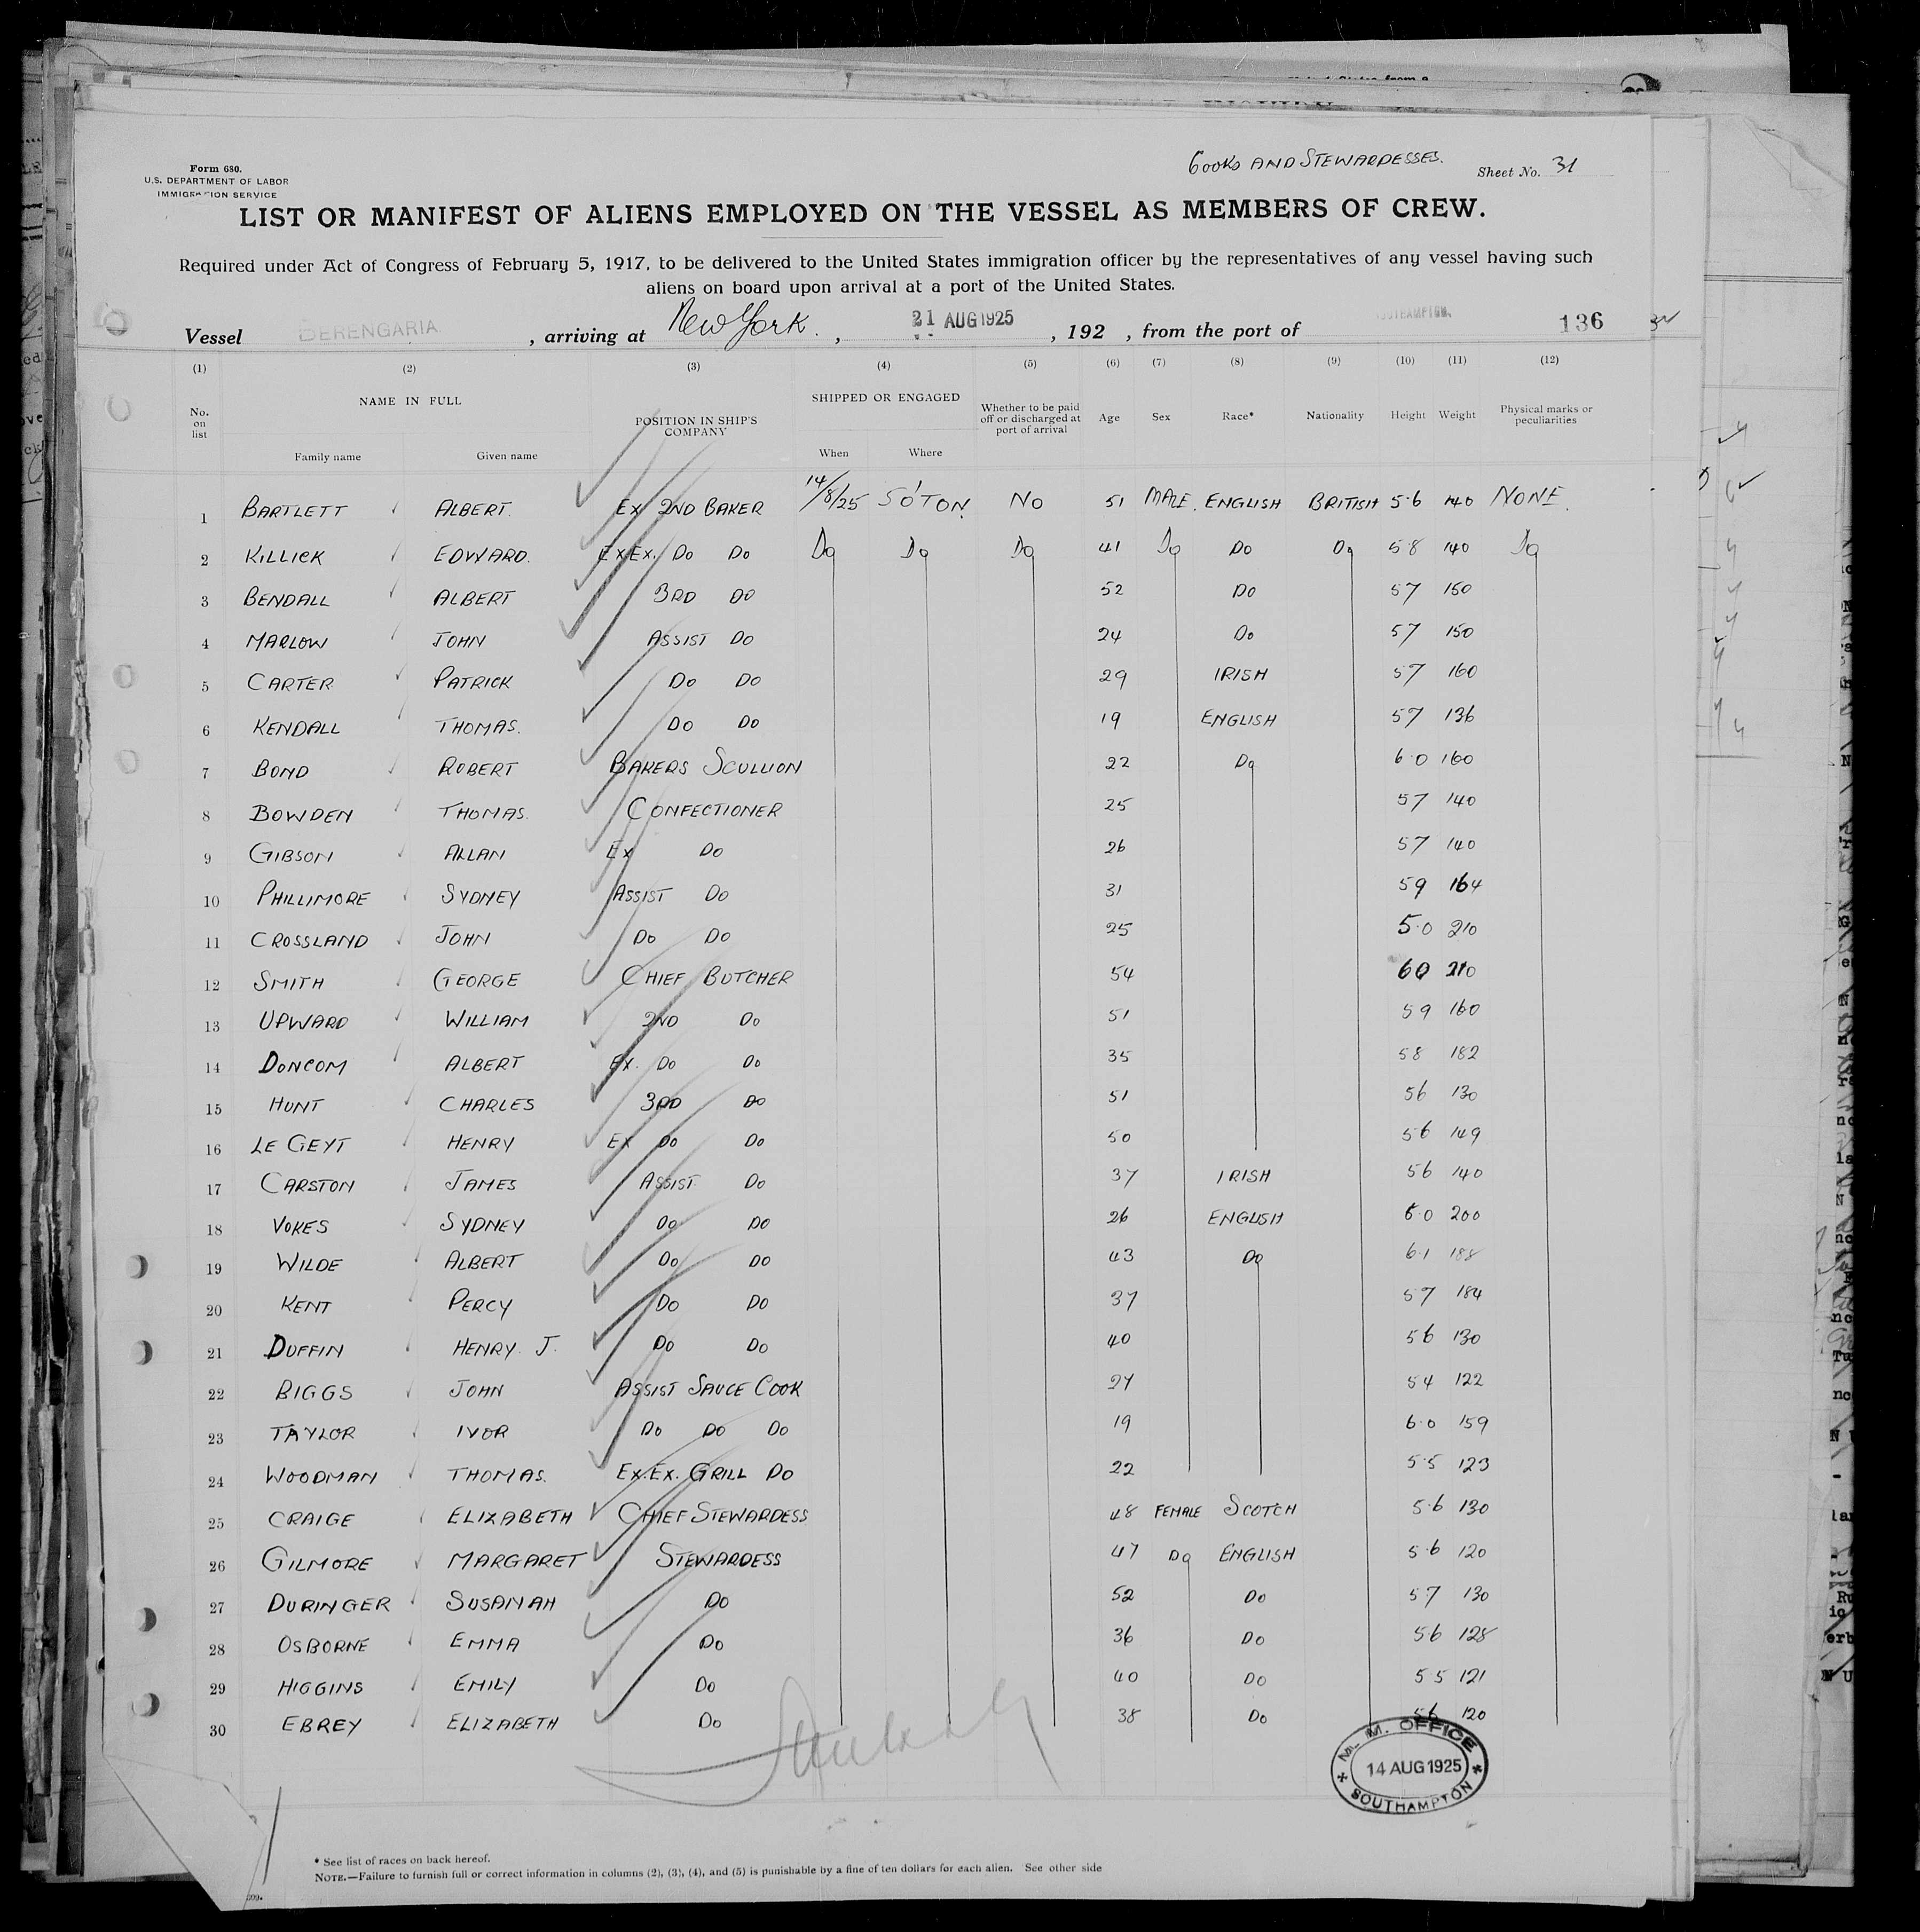 Form 680.
U.S. DEPARTMENT OF LABOR
IMMIGRATION SERVICE
COOKS AND STEWARDESSES.
Sheet No. 31
LIST OR MANIFEST OF ALIENS EMPLOYED ON THE VESSEL AS MEMBERS OF CREW.
Required under Act of Congress of February 5, 1917, to be delivered to the United States immigration officer by the representatives of any vessel having such
aliens on board upon arrival at a port of the United States.
Vessel BERENGARIA , arriving at New York. , 21 AUG 1925 , 192 , from the port of SOUTHAMPTON. 136
(1) (2) (3) (4) (5) (6) (7) (8) (9) (10) (11) (12)
No. on list NAME IN FULL POSITION IN SHIP'S COMPANY SHIPPED OR ENGAGED Whether to be paid off or discharged at port of arrival Age Sex Race* Nationality Height Weight Physical marks or peculiarities
Family name Given name When Where
1 BARTLETT ALBERT. EX 2ND BAKER 14/8/25 SO'TON. NO 51 MALE. ENGLISH BRITISH 5·6 140 NONE.
2 KILLICK EDWARD. EX EX. DO DO DO DO DO 41 DO DO DO 5 8 140 DO
3 BENDALL ALBERT 3RD DO 52 DO 5 7 150
4 MARLOW JOHN ASSIST DO 24 DO 5 7 150
5 CARTER PATRICK DO DO 29 IRISH 5 7 160
6 KENDALL THOMAS. DO DO 19 ENGLISH 5 7 136
7 BOND ROBERT BAKERS SCULLION 22 DO 6·0 160
8 BOWDEN THOMAS. CONFECTIONER 25 5 7 140
9 GIBSON ALLAN EX DO 26 5 7 140
10 PHILLIMORE SYDNEY ASSIST DO 31 5 9 164
11 CROSSLAND JOHN DO DO 25 5·0 210
12 SMITH GEORGE CHIEF BUTCHER 54 6 0 210
13 UPWARD WILLIAM 2ND DO 51 5 9 160
14 DONCOM ALBERT EX. DO DO 35 5 8 182
15 HUNT CHARLES 3RD DO 51 5 6 130
16 LE GEYT HENRY EX DO DO 50 5 6 149
17 CARSTON JAMES ASSIST DO 37 IRISH 5 6 140
18 VOKES SYDNEY DO DO 26 ENGLISH 6·0 200
19 WILDE ALBERT DO DO 43 DO 6·1 188
20 KENT PERCY DO DO 37 5 7 184
21 DUFFIN HENRY. J. DO DO 40 5 6 130
22 BIGGS JOHN ASSIST SAUCE COOK 27 5 4 122
23 TAYLOR IVOR DO DO DO 19 6·0 159
24 WOODMAN THOMAS. EX. EX. GRILL DO 22 5·5 123
25 CRAIGE ELIZABETH CHIEF STEWARDESS 48 FEMALE SCOTCH 5·6 130
26 GILMORE MARGARET STEWARDESS 47 DO ENGLISH 5·6 120
27 DURINGER SUSANAH DO 52 DO 5 7 130
28 OSBORNE EMMA DO 36 DO 5 6 128
29 HIGGINS EMILY DO 40 DO 5 5 121
30 EBREY ELIZABETH DO 38 DO 5 6 120
M. M. OFFICE
14 AUG 1925
SOUTHAMPTON
* See list of races on back hereof.
NOTE.—Failure to furnish full or correct information in columns (2), (3), (4), and (5) is punishable by a fine of ten dollars for each alien. See other side